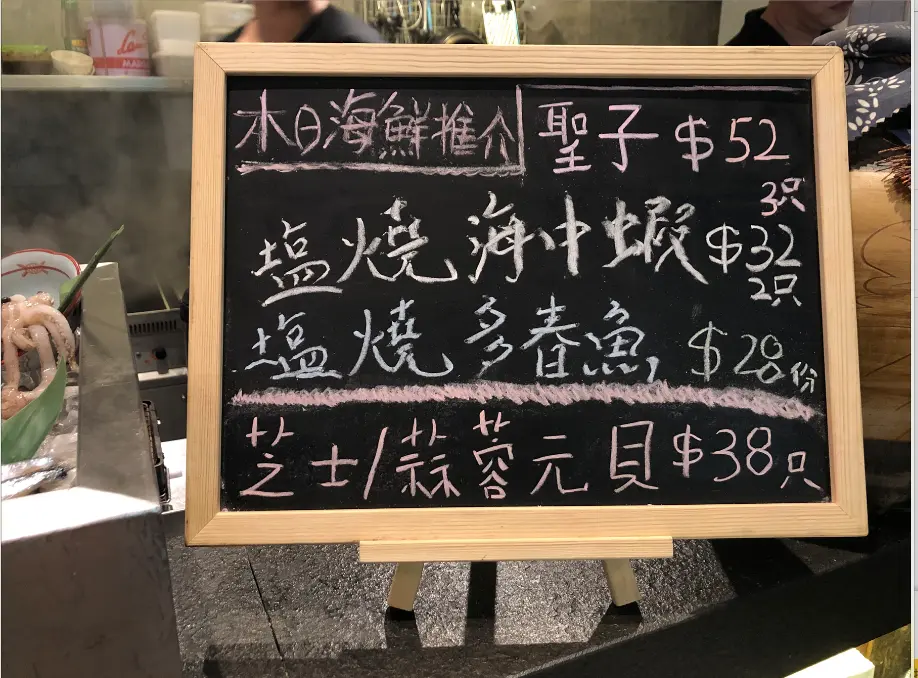 本日海鮮推介
聖子 $52
3只
塩燒海中蝦 $32
2只
塩燒多春魚 $28份
芝士/蒜蓉元貝 $38只